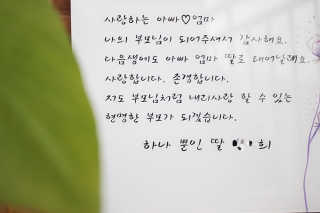 사랑하는 아빠♡엄마
나의 부모님이 되어주셔서 감사해요.
다음생에도 아빠 엄마 딸로 태어날래요.
사랑합니다. 존경합니다.
저도 부모님처럼 내리사랑 할 수 있는
현명한 부모가 되겠습니다.
하나 뿐인 딸 희